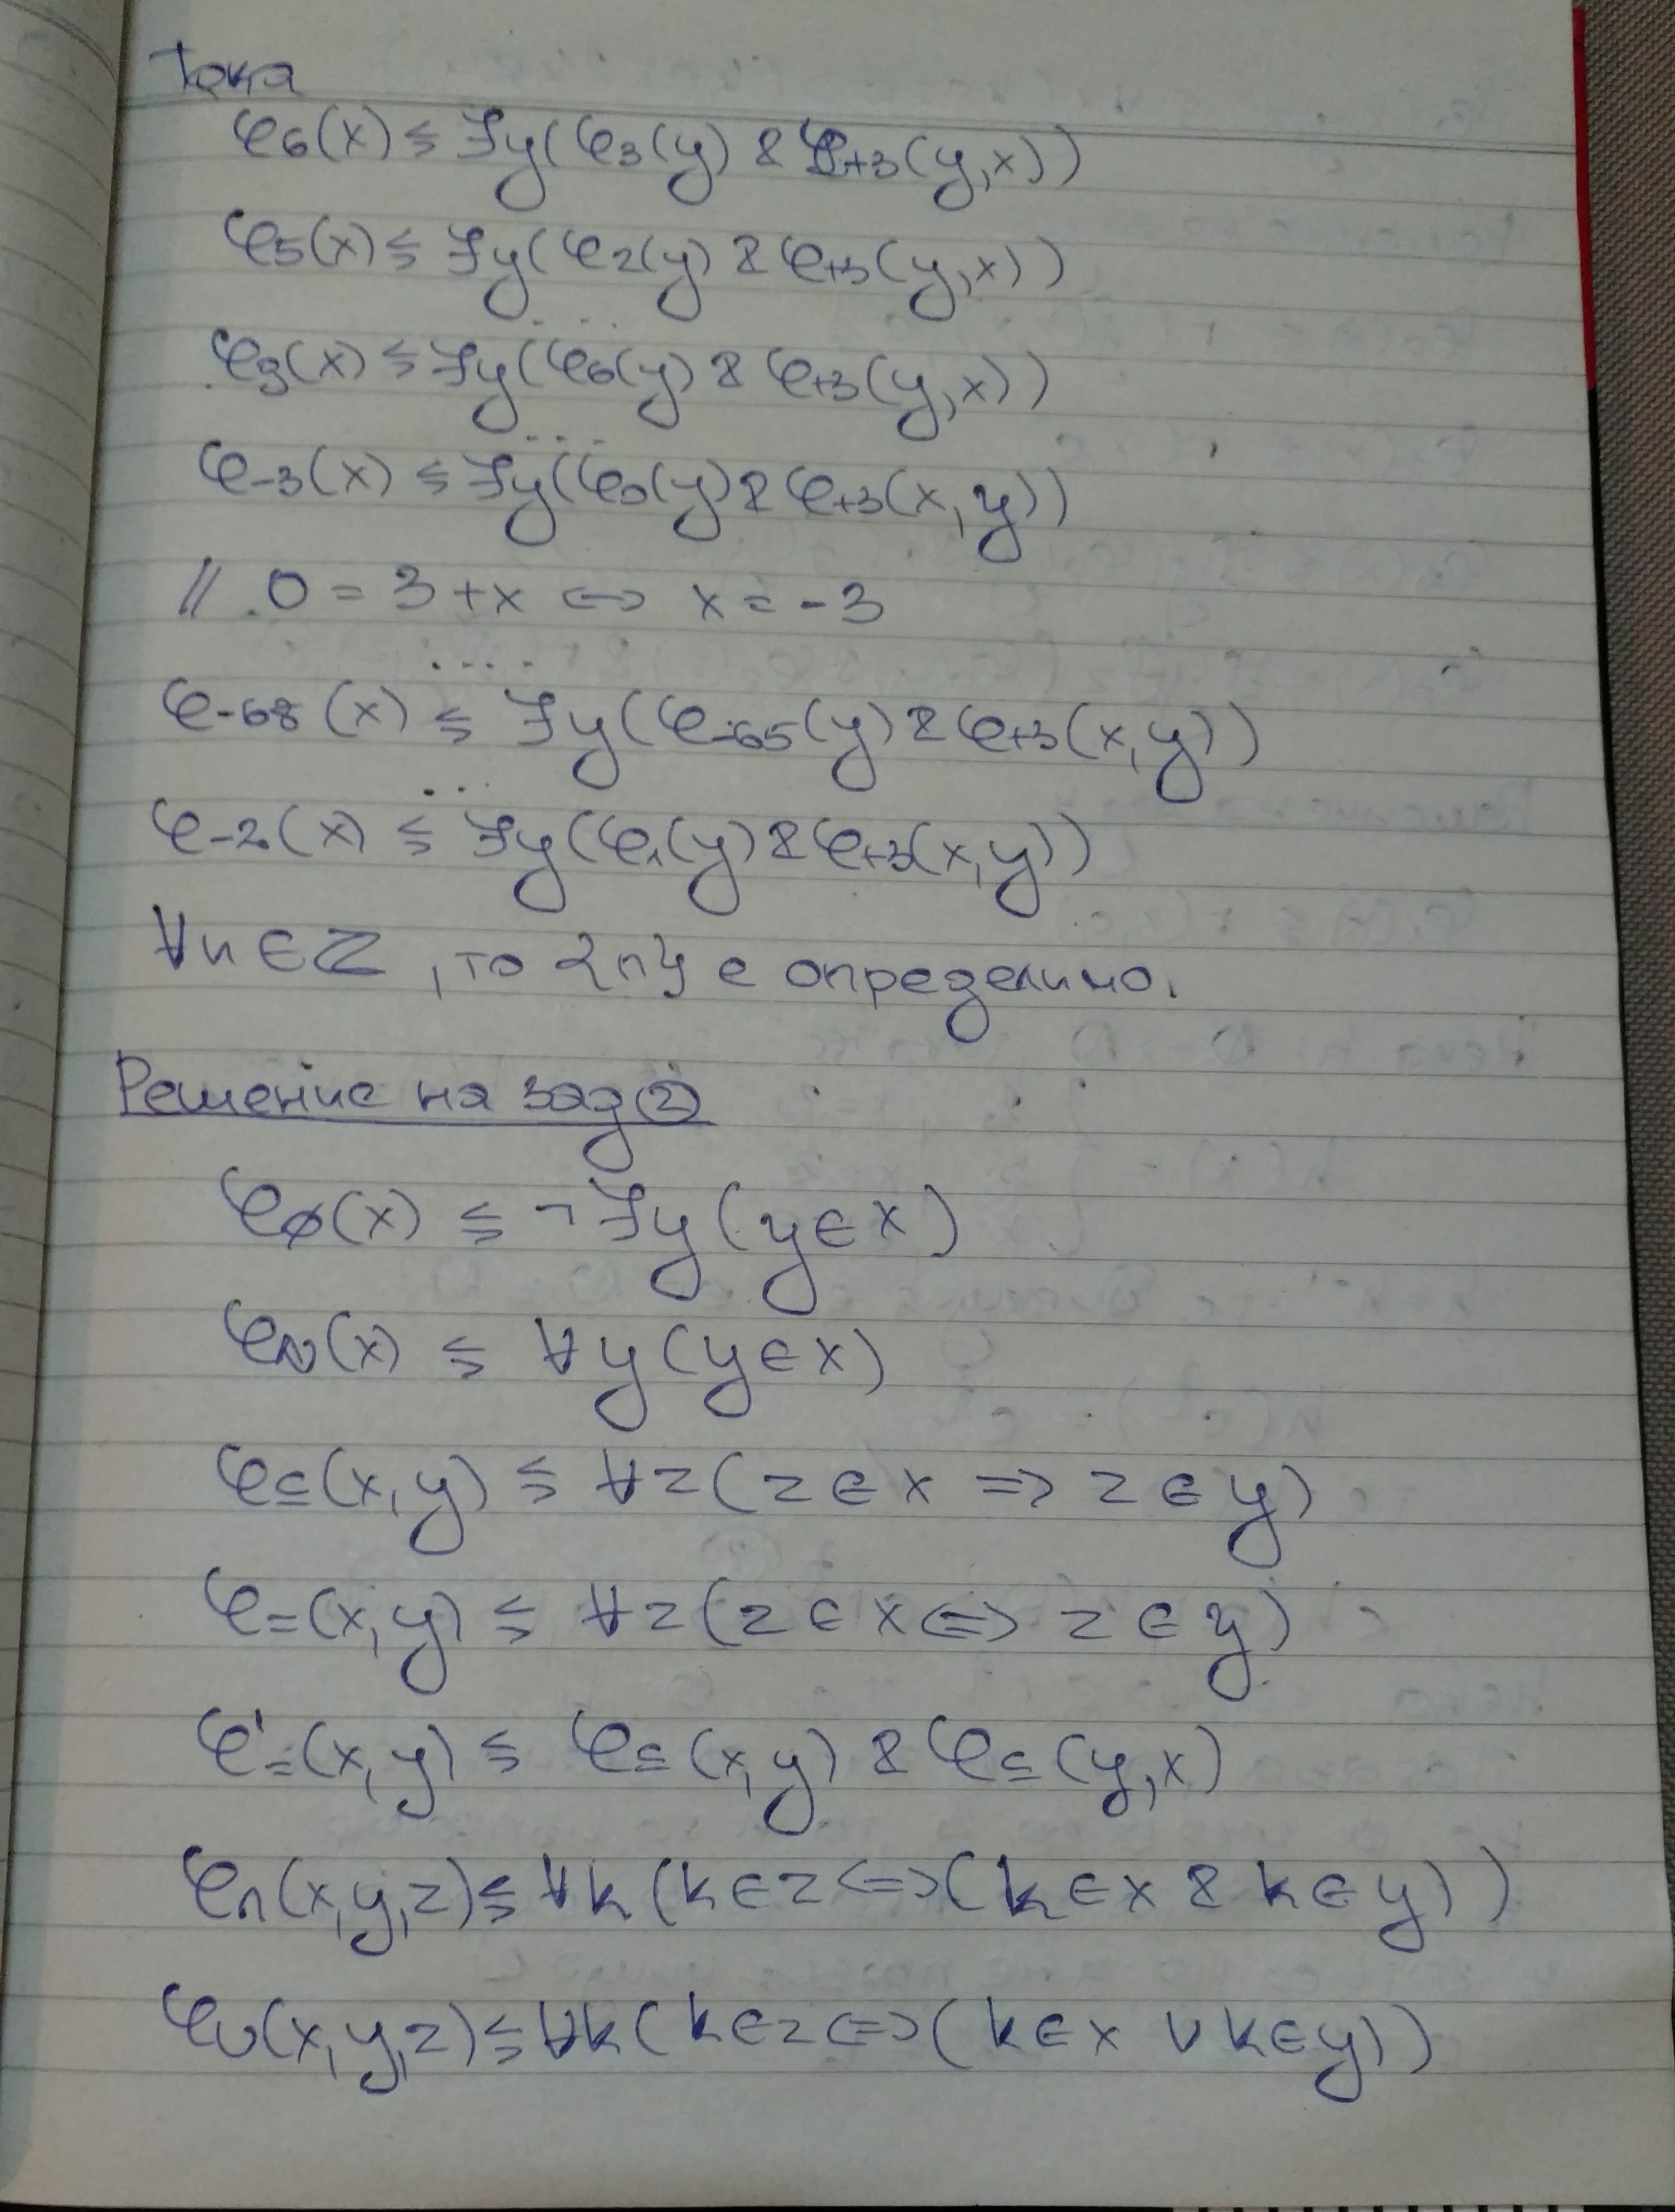 Така
φ₆(x) ≤ ∃y(φ₃(y) & φ₊₃(y,x))
φ₅(x) ≤ ∃y(φ₂(y) & φ₊₃(y,x))
...
φ₉(x) ≤ ∃y(φ₆(y) & φ₊₃(y,x))
...
φ₋₃(x) ≤ ∃y(φ₀(y) & φ₊₃(x,y))
// 0 = 3 + x ↔ x = -3
....
φ₋₆₈(x) ≤ ∃y(φ₋₆₅(y) & φ₊₃(x,y))
...
φ₋₂(x) ≤ ∃y(φ₁(y) & φ₊₃(x,y))
∀n∈ℤ, то {n} е определимо.
Решение на зад ②
φ_∅(x) ≤ ¬∃y(y∈x)
φ_ℕ(x) ≤ ∀y(y∈x)
φ_⊆(x,y) ≤ ∀z(z∈x => z∈y)
φ_=(x,y) ≤ ∀z(z∈x <=> z∈y)
φ'_=(x,y) ≤ φ_⊆(x,y) & φ_⊆(y,x)
φ_∩(x,y,z) ≤ ∀k(k∈z <=> (k∈x & k∈y))
φ_∪(x,y,z) ≤ ∀k(k∈z <=> (k∈x ∨ k∈y))